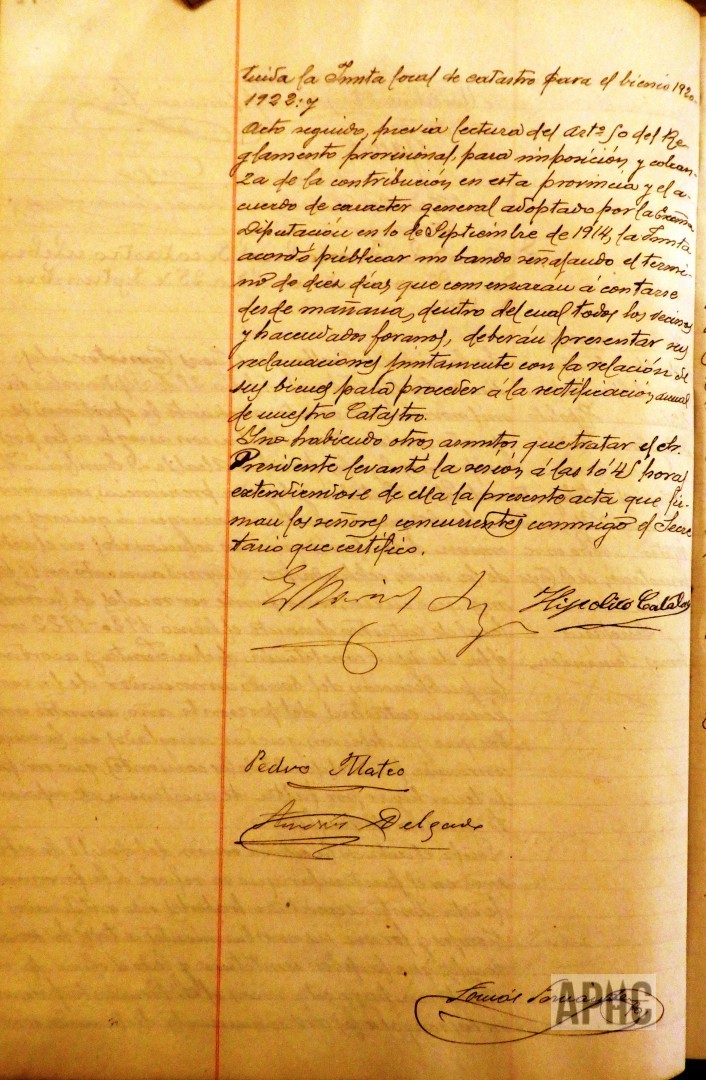 tuida la Junta local de catastro para el bienio 1920-
1922: y
Acto seguido, previa lectura del artº 50 del Re
glamento provisional, para imposición y cobran-
za de la contribución en esta provincia y el a-
cuerdo de caracter general adoptado por la Excma
Diputación en 10 de Septiembre de 1914, la Junta
acordó públicar un bando señalando el termi-
no de diez días que comenzarán á contarse
desde mañana, dentro del cual todos los vecinos
y hacendados foranos, deberán presentar sus
reclamaciones juntamente con la relación de
sus bienes para proceder á la rectificación anual
de nuestro Catastro.
Y no habiendo otros asuntos que tratar el Sr.
Presidente levantó la sesión á las 10'45 horas
extendiendose de ella la presente acta que fir-
man los señores concurrentes conmigo el Secre
tario que certifico.
Hipolito Catalan
Pedro Mateo
Delgado
Tomás
APHC